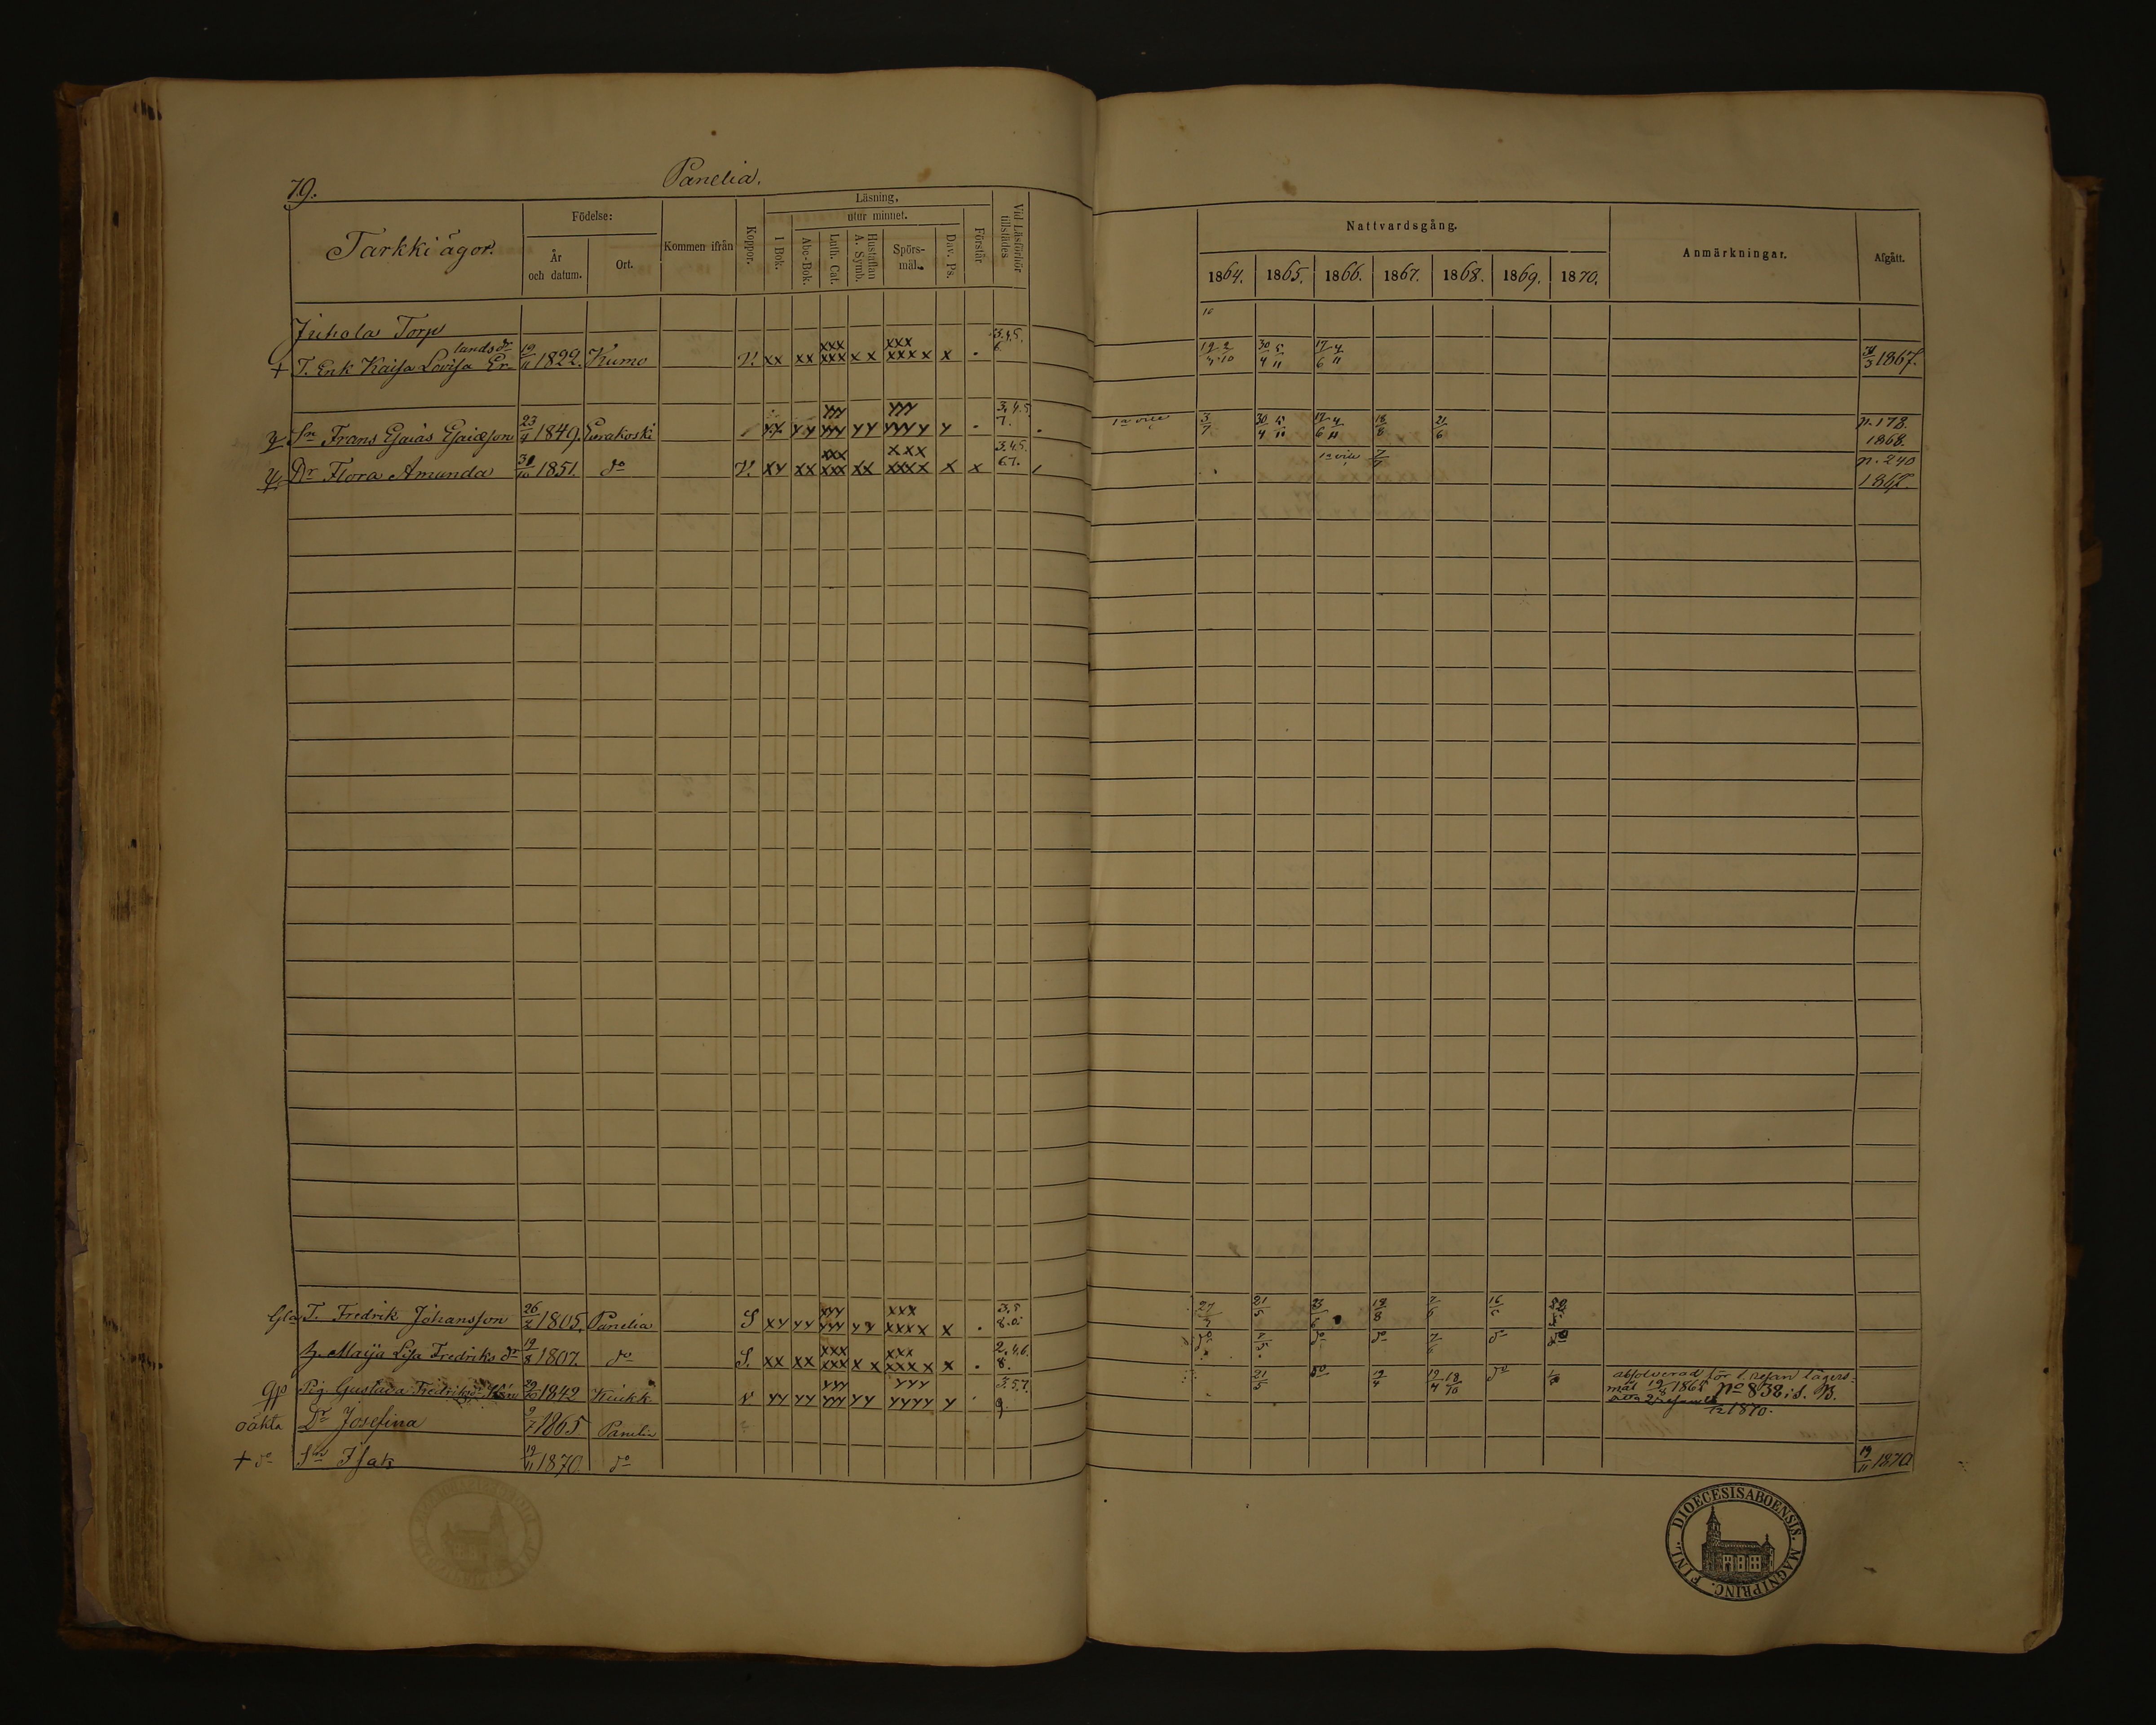 79.
Panelia.
Tarkki ägor.
Födelse:
År
och datum.
Ort.
Kommen ifrån
Koppor.
Läsning,
utur minnet.
I Bok.
Abc-Bok.
Luth. Cat.
Hustaflan
A. Symb.
Spörs-
mål.
Dav. Ps.
Förstår.
Vid Läsförhör
tillstädes
Nattvardsgång.
1864. 1865. 1866. 1867. 1868. 1869. 1870.
Anmärkningar.
Afgått.
Juhola Torp
lands dr
+ T. Enk Kaisa Lovisa Er- 19/11 1822. Kumo V. xx xx xxx xxx x x xxx xxxx x . 3.4.5. 6 19/4 2/10 30/4 5/11 17/6 4/11 31/3 1867.
Sn Frans Esaias Esaiæson 23/4 1849. Eurakoski yy yyy yyy yy yyy yyyy y . 3.4.5. 7. 1a vice 3/7 30/4 5/11 17/6 4/11 18/8 21/6 n. 178. 1868.
Dr Flora Amanda 31/10 1851. do V. xy xx xxx xxx xx xxx xxxx x x 3.4.5. 6.7. 1a vice 7/7 n. 240 1867.
T. Fredrik Johansson 26/2 1805. Panelia S xy yy yyy yyy yy xxx xxxx x . 3.5 8.0. 27/3 21/5 18/8 7/6 16/5
h. Maija Lisa Fredriks dr 19/8 1807. do S. xx xx xxx xxx x x xxx xxxx x . 2.4.6. 8. do do do 7/6 do
Pig. Gustava Fredriks 29/10 1842 Kiukk. v yy yy yyy yyy yy yyy yyyy y 3.5.7. 9. 21/5 do 19/4 19/4 18/10 do absolverad för 1. resan lägers-
mål 19/8 1865 No 838, i. s. B.
1870.
oäkta Dr Josefina 9/7 1865 Panelia
+ do Sn Isak 19/11 1870. do 19/11 1870
DIOECESIS ABOENSIS. MAGNI PRINC. FINL.